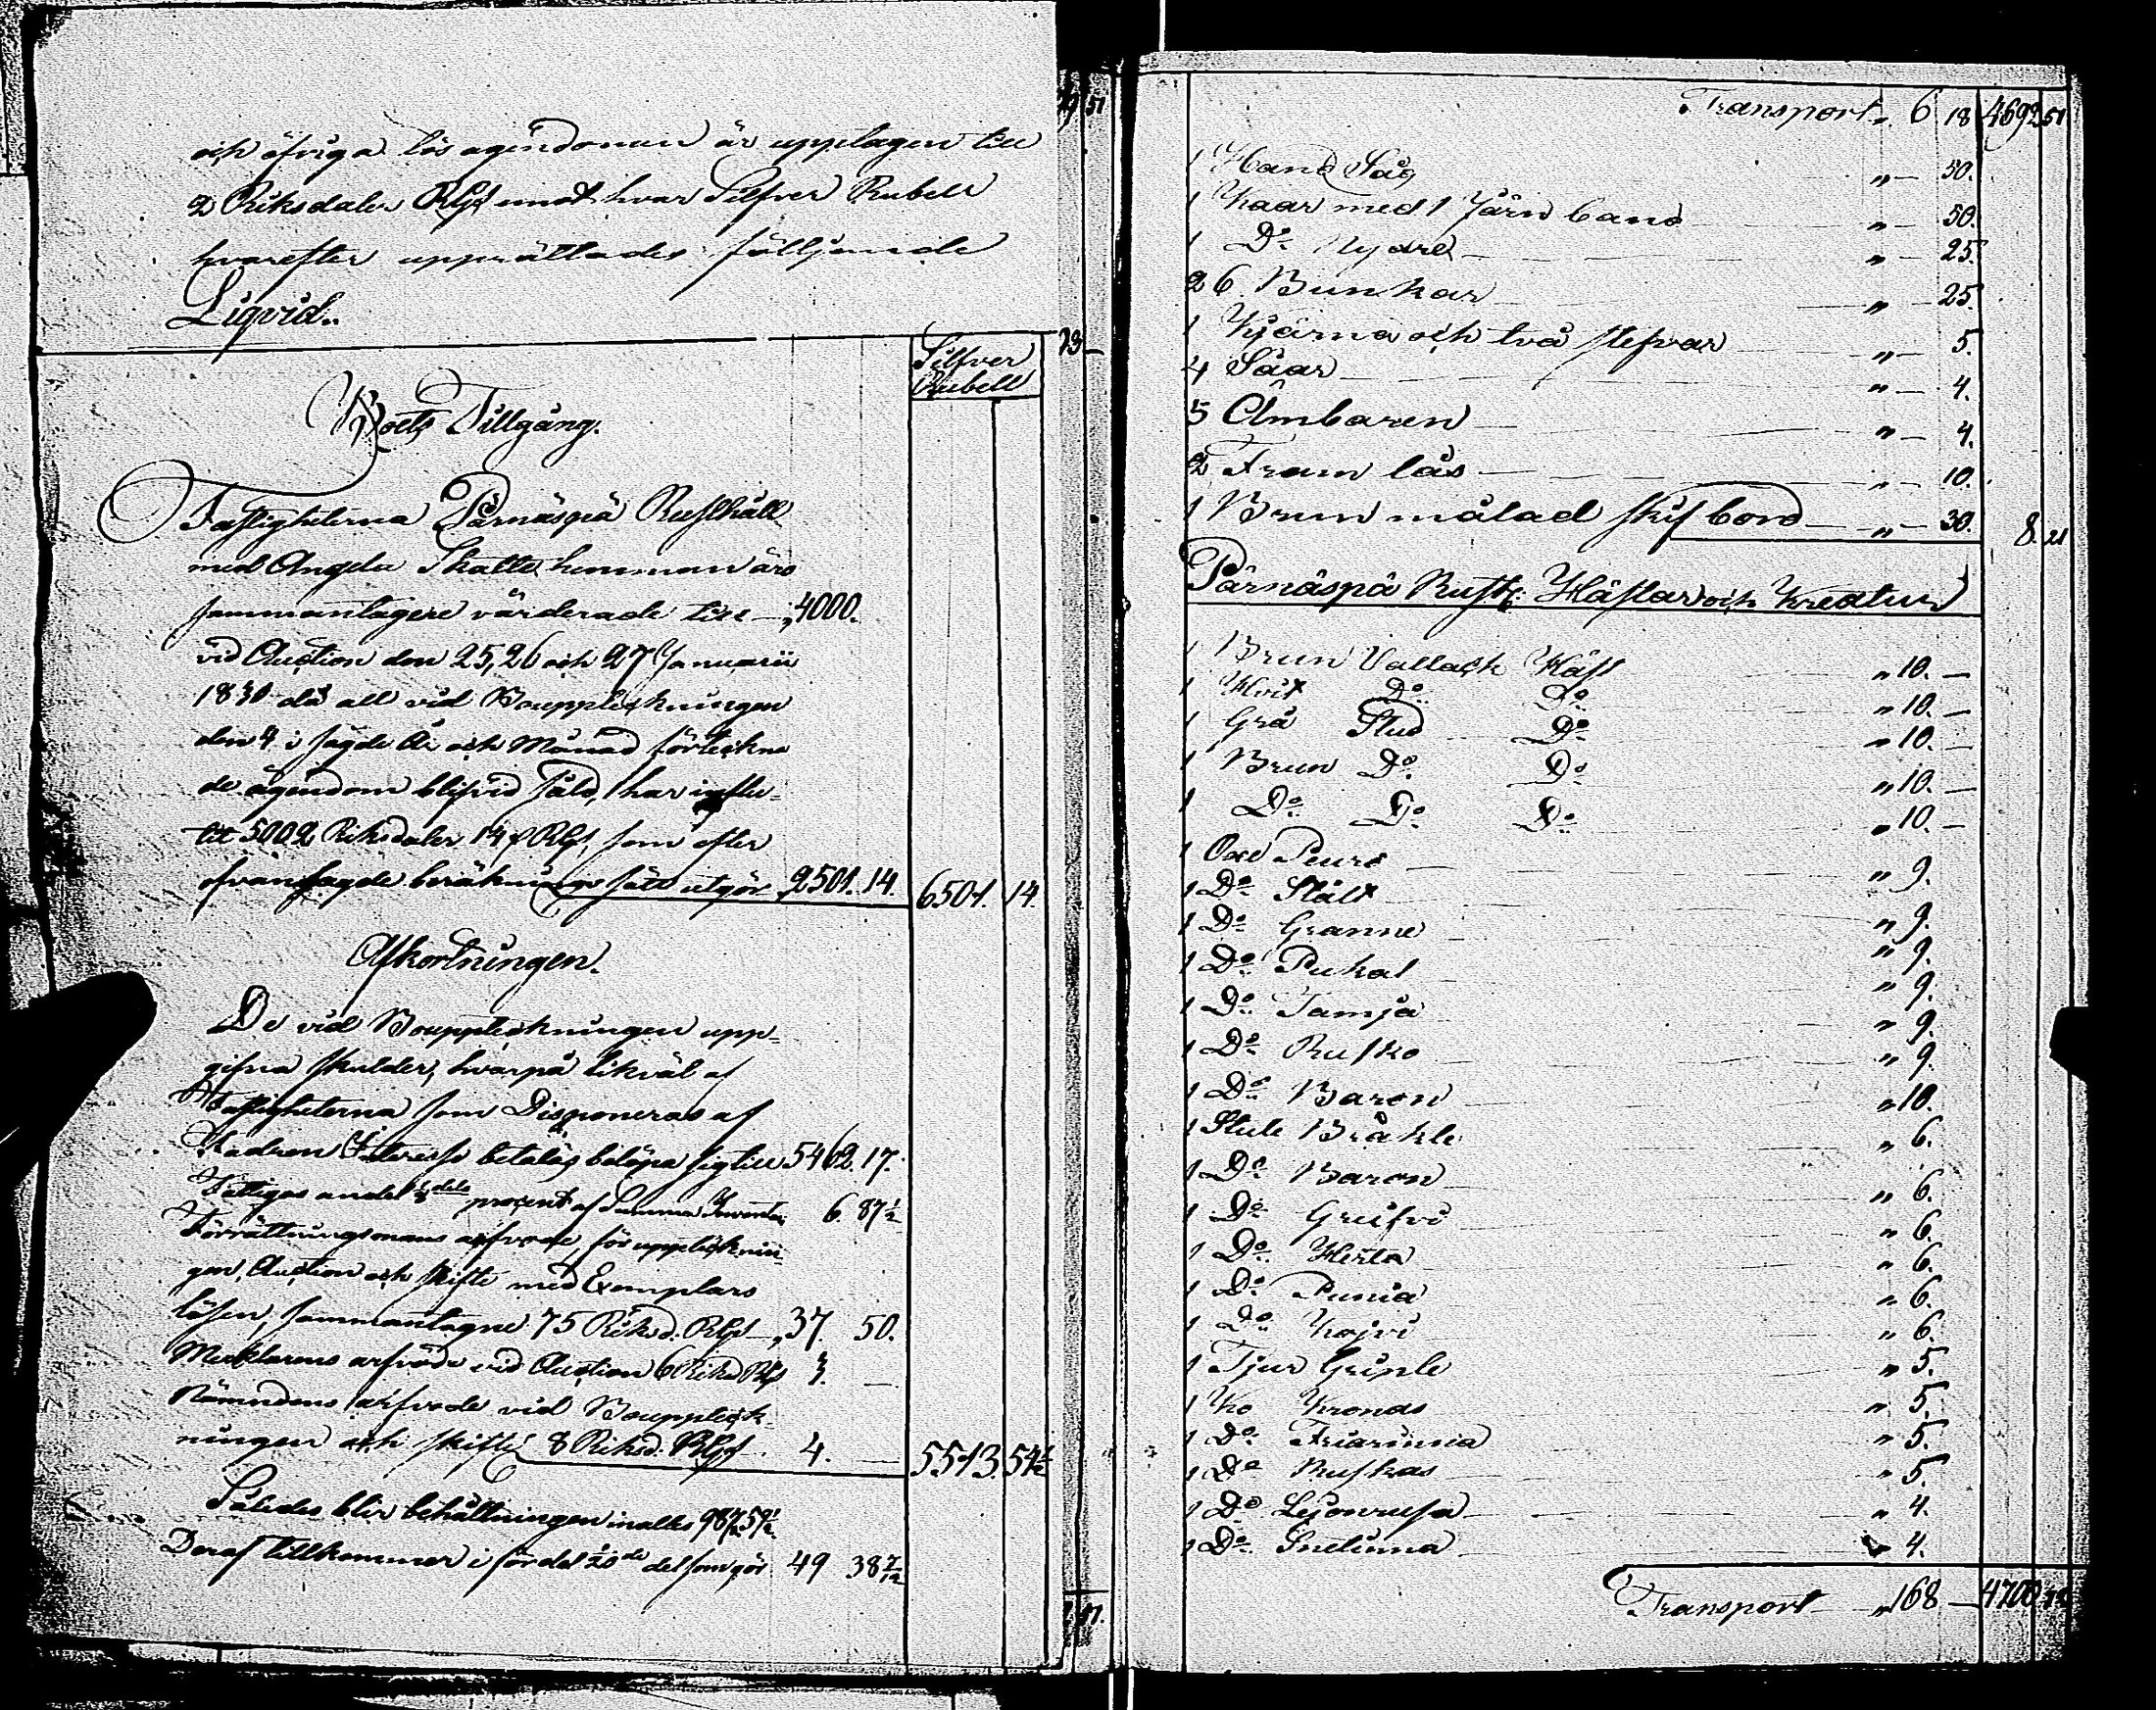 och öfriga lösagendomen är upptagen till
2 Riksdaler RGs emot hvar Silfver Rubell
hvarefter upprättades följjande
Liqvid.
Silfver
Rubell
Boets Tillgång.
Fastigheterna Pärnäspä Rusthåll
med Angela Skatte hemman äro
sammantagne värderade till 4000.
vid Auction den 25, 26 och 27 Januarii
1830 då all vid Bouppteckningen
den 4 i sagde År och Månad förteckna
de ägendom blifvid såld, har influ-
tit 5002 Riksdaler 14 s RGs, som efter
ofvansagde beräknings sätt utgör 2501. 14. 6501. 14.
Afkortningen.
De vid Bouppteckningen upp-
gifna skulder, hvarpå likväl af
Fastigheterna som Disponeras af
betalas belöpa sig till 5462. 17.
Fattigas andel 1/8 dels procent af Summa Invent. 6. 87 1/2
Förrättningsmans arfvode för upptecknin-
gen, Auction och skifte med Exemplars
lösen, sammantagne 75 Riksd. RGs 37. 50.
Mecklarens arfvode vid Auction 6 Riksd RGs 3. —
Nämndens arfvode vid Boupptek-
ningen och skifte 8 Riksd. RGs 4. — 5513. 54 1/2
Således blir behållningen inalles 987. 59 1/2
Deraf tillkommer i fördel 1/20 de del som gör 49 38 7/12
Transport „ 6 18 4692 51
1 Hand Såg „ — 30.
1 Kaar med 1 Järn band „ — 50.
1 Do Nyare „ — 25.
26 Bunkar „ — 25
1 Kjärna och två stefvar „ — 5.
4 Såar „ — 4.
5 Ämbaren „ — 4.
2 Fram lås „ — 10.
1 Brun målad skif bord „ — 30. 8. 21
Pärnäspä Rusth: Hästar och Kreatur
1 Brun Vallack Häst „ 10. —
1 Hvit Do Do „ 10. —
1 Grå Stud Do „ 10. —
1 Brun Do Do „ 10. —
1 Do Do Do „ 10. —
1 Oxe Peuro „ 9.
1 Do Stålt „ 9.
1 Do Granne „ 9.
1 Do Pukal „ 9.
1 Do Tamja „ 9.
1 Do Rusko „ 9.
1 Do Baron „ 10.
1 Stut Bråkle „ 6.
1 Do Baron „ 6.
1 Do Greifvi „ 6.
1 Do Herta „ 6.
1 Do Punia „ 6.
1 Do Kojvi „ 6.
1 Tjur Grinle „ 5.
1 Ko Kronas „ 5.
1 Do Friarinna „ 5.
1 Do Ruskas „ 5.
1 Do Lejonrusa „ 4.
1 Do Snelinna „ 4.
Transport „ 168 — 4700 72